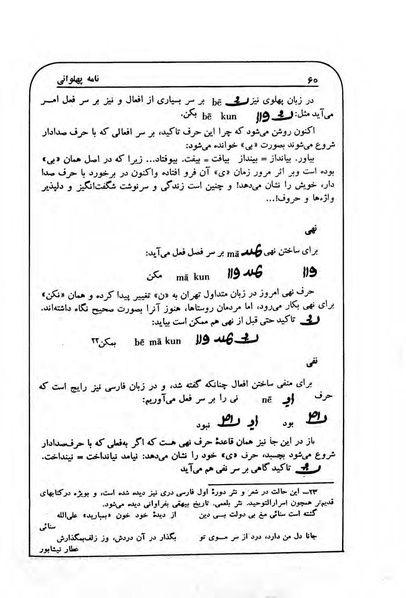 ۶۰ نامه پهلوانی
در زبان پهلوی نیز bē بر سر بسیاری از افعال و نیز بر سر فعل امر
می‌آید مثل: bē kun بکن.
اکنون روشن می‌شود که چرا این حرف تاکید، بر سر افعالی که با حرف صدادار
شروع می‌شوند بصورت «بی» خوانده می‌شود:
بیاور. بیانداز = بینداز بیافت = بیفت. بیوفتاد... زیرا که در اصل همان «بی»
بوده است وبر اثر مرور زمان «ی» آن فرو افتاده واکنون در برخورد با حرف صدا
دار، خویش را نشان می‌دهد! و چنین است زندگی و سرنوشت شگفت‌انگیز و دلپذیر
واژه‌ها و حروف!...
نهی
برای ساختن نهی mā بر سر فصل فعل می‌آید:
mā kun مکن
حرف نهی امروز در زبان متداول تهران به «ن» تغییر پیدا کرده و همان «نکن»
برای نهی بکار میرود، اما مردمان روستاها، هنوز آنرا بصورت صحیح نگاه داشته‌اند.
تاکید حتی قبل از نهی هم ممکن است بیاید:
bē mā kun بمکن۲۳
نفی
برای منفی ساختن افعال چنانکه گفته شد، و در زبان فارسی نیز رایج است که
حرف nē نی را بر سر فعل می‌آوریم:
بود نبود
باز در این جا نیز همان قاعدهٔ حرف نهی هست که اگر به‌فعلی که با حرف‌صدادار
شروع می‌شود بچسبد، حرف «ی» خود را نشان می‌دهد: نیامد نیانداخت = نینداخت.
تاکید گاهی بر سر نفی هم می‌آید
۲۳ــ این حالت در شعر و نثر دورهٔ اول فارسی دری نیز دیده شده است، و بویژه درکتابهای
قدیم‌تر همچون اسرارالتوحید. نثر بلعمی. تاریخ بیهقی بفراوانی دیده می‌شود.
گفته است سنائی مغ بی دولت بسی دین از دیدهٔ خود خون «بمبارید» علی‌الله
سنائی
جانا دل من دارد، درد از سر موی تو بگذار در آن دردش، وز زلف‌بمگذارش
عطار نیشابور